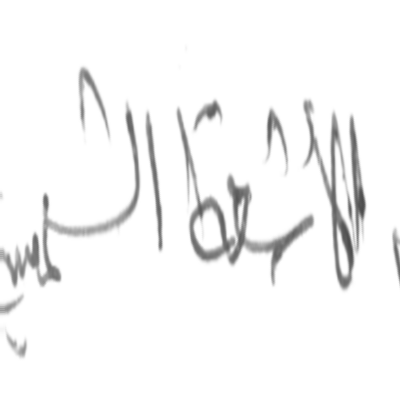 الأشعة الشمسية